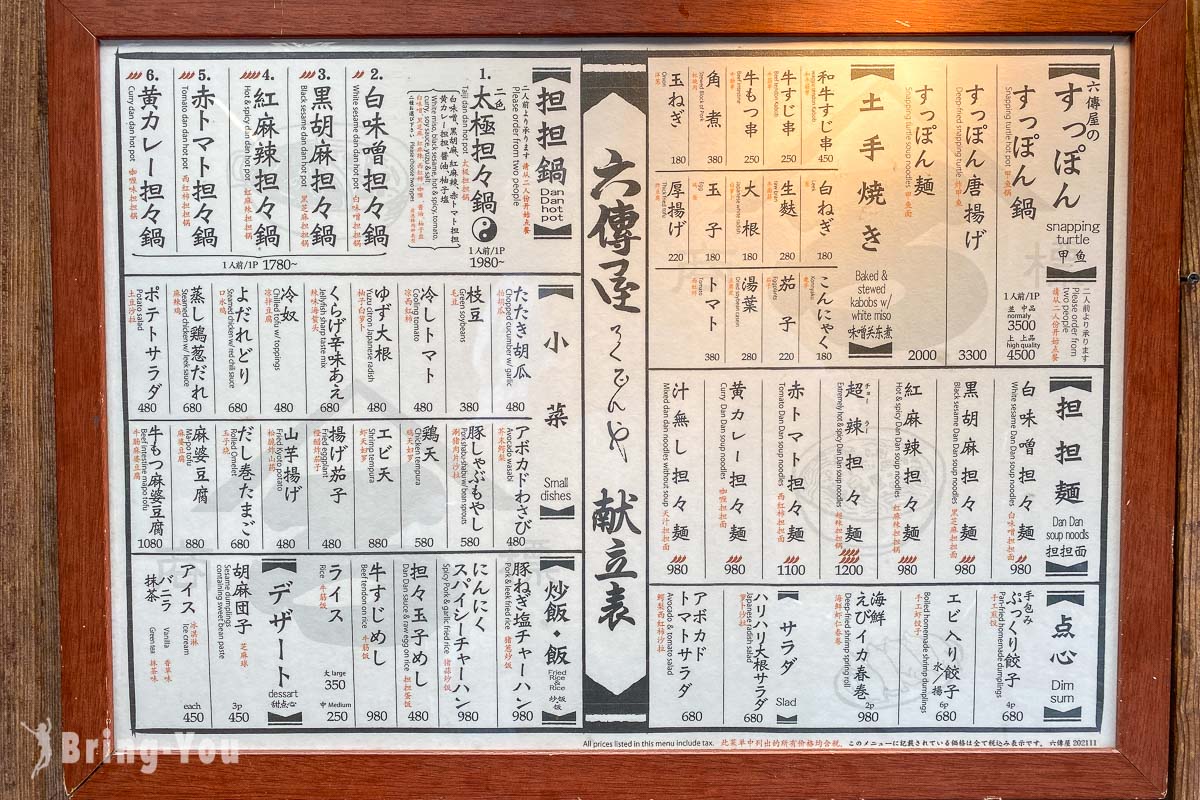 六傳屋 ろくでんや 献立表
六傳屋の
すっぽん
snapping turtle
甲鱼
二人前より承ります
Please order from two people
请从二人份开始点餐
すっぽん鍋
Snapping turtle hot pot 甲鱼锅
1人前/1P
並 中品
normaly
3500
上 上品
high quality
4500
すっぽん唐揚げ
Deep-fried snapping turtle 炸甲鱼
3300
すっぽん麺
Snapping turtle soup noodles 甲鱼面
2000
土手焼き
Baked & stewed kabobs w/ white miso
味噌关东煮
和牛すじ串
450
牛すじ串
Beef tendon Kabab
250
牛もつ串
Beef intestine
250
角煮
Stewed Block of Pork
380
玉ねぎ
Onion
洋葱
180
白ねぎ
180
生麩
280
大根
Japanese white radish
180
玉子
Egg
180
厚揚げ
Thick fried tofu
220
こんにゃく
Konnyaku
180
茄子
Eggplants
220
湯葉
Dried soybean casein
280
トマト
Tomato
西红柿
380
担担麺
Dan Dan soup noodls
担担面
白味噌担々麺
White sesame Dan Dan soup noodles
白味噌担担面
980
黒胡麻担々麺
Black sesame Dan Dan soup noodles
黑芝麻担担面
980
紅麻辣担々麺
Hot & spicy Dan Dan soup noodles
红麻辣担担锅
980
超辣担々麺
チョー ラー
Extremely hot & spicy Dan Dan soup noodles
超辣担担锅
1200
赤トマト担々麺
Tomato Dan Dan soup noodles
西红柿担担面
1100
黄カレー担々麺
Curry Dan Dan soup noodles
咖喱担担面
980
汁無し担々麺
Mixed dan dan noodles without soup
无汁担担面
980
点心
Dim sum
手包み
ぷっくり餃子
Pan-fried homemade dumplings
手工煎饺
4p
680
エビ入り水餃子
Boiled homemade shrimp dumplings
手工虾饺子
6p
680
海鮮
えびイカ春巻
Deep-fried shrimp spring roll
海鲜虾仁春卷
2p
980
サラダ
Slad
ハリハリ大根サラダ
Japanese radish salad
萝卜沙拉
680
アボカド
トマトサラダ
Avocado & tomato salad
鳄梨西红柿沙拉
680
担担鍋
Dan Dan hot pot
二人前より承ります 请从二人份开始点餐
Please order from two people
1.
二色
太極担々鍋
Taiji dan dan hot pot 太极担担锅
1人前/1P
1980~
白味噌、黒胡麻、紅麻辣、赤トマト担担
黄カレー担担、醤油、柚子塩
White miso, black sesame, hot & spicy, tomato,
curry, soy sauce, yuzu & salt
二種お選び下さい Please choose two types
2.
白味噌担々鍋
White sesame dan dan hot pot 白味噌担担锅
3.
黒胡麻担々鍋
Black sesame dan dan hot pot 黑芝麻担担锅
4.
紅麻辣担々鍋
Hot & spicy dan dan hot pot 红麻辣担担锅
5.
赤トマト担々鍋
Tomato dan dan hot pot 西红柿担担锅
6.
黄カレー担々鍋
Curry dan dan hot pot 咖喱味担担锅
1人前/1P 1780~
小菜
Small dishes
たたき胡瓜
Chopped cucumber w/ garlic
拍胡瓜
480
枝豆
Green soybeans
毛豆
380
冷しトマト
Cooling tomato
凉西红柿
480
ゆず大根
Yuzu citron Japanese radish
柚子白萝卜
480
くらげ辛味あえ
Jellyfish sharp taste mix
辣味海蜇头
680
冷奴
Chilled tofu w/ toppings
凉拌豆腐
480
よだれどり
Steamed chicken w/ red chili sauce
口水鸡
680
蒸し鶏葱だれ
Steamed chicken w/ leek sauce
麻辣鸡
680
ポテトサラダ
Potato salad
土豆沙拉
480
アボカドわさび
Avocado wasabi
芥末鳄梨
480
豚しゃぶもやし
Pork shabu shabu w/ bean sprouts
涮猪肉片沙拉
580
鶏天
Chicken tempura
鸡天妇罗
580
エビ天
Shrimp tempura
虾天妇罗
880
揚げ茄子
Fried eggplant
怪醋炸茄子
480
山芋揚げ
Fried Kyoto potato
松脆炸山药
480
だし巻たまご
Rolled Omelet
玉子烧
680
麻婆豆腐
Ma-po tofu
麻婆豆腐
880
牛もつ麻婆豆腐
Beef intestine ma-po tofu
牛肠麻婆豆腐
1080
炒飯・飯
Fried Rice & Rice
炒饭 饭
豚ねぎ塩チャーハン
Pork & leek fried rice 猪葱炒饭
980
にんにく
スパイシーチャーハン
Spicy Pork & garlic fried rice 猪蒜炒饭
980
担々玉子めし
Dan Dan sauce & raw egg on rice 担担蛋饭
480
牛すじめし
Beef tendon on rice 牛筋饭
980
ライス
Rice 牛筋饭
大 large
350
中 Medium
250
デザート
dessart
甜点心
胡麻団子
Sesame dumplings containing sweet bean paste
芝麻球
3p
450
アイス
Ice cream 冰淇淋
バニラ
Vanilla 香草味
抹茶
Green tea 抹茶味
each
450
All prices listed in this menu include tax. 此菜单中列出的所有价格均含税。このメニューに記載されている価格は全て税込み表示です。 六傳屋 202111
Bring-You